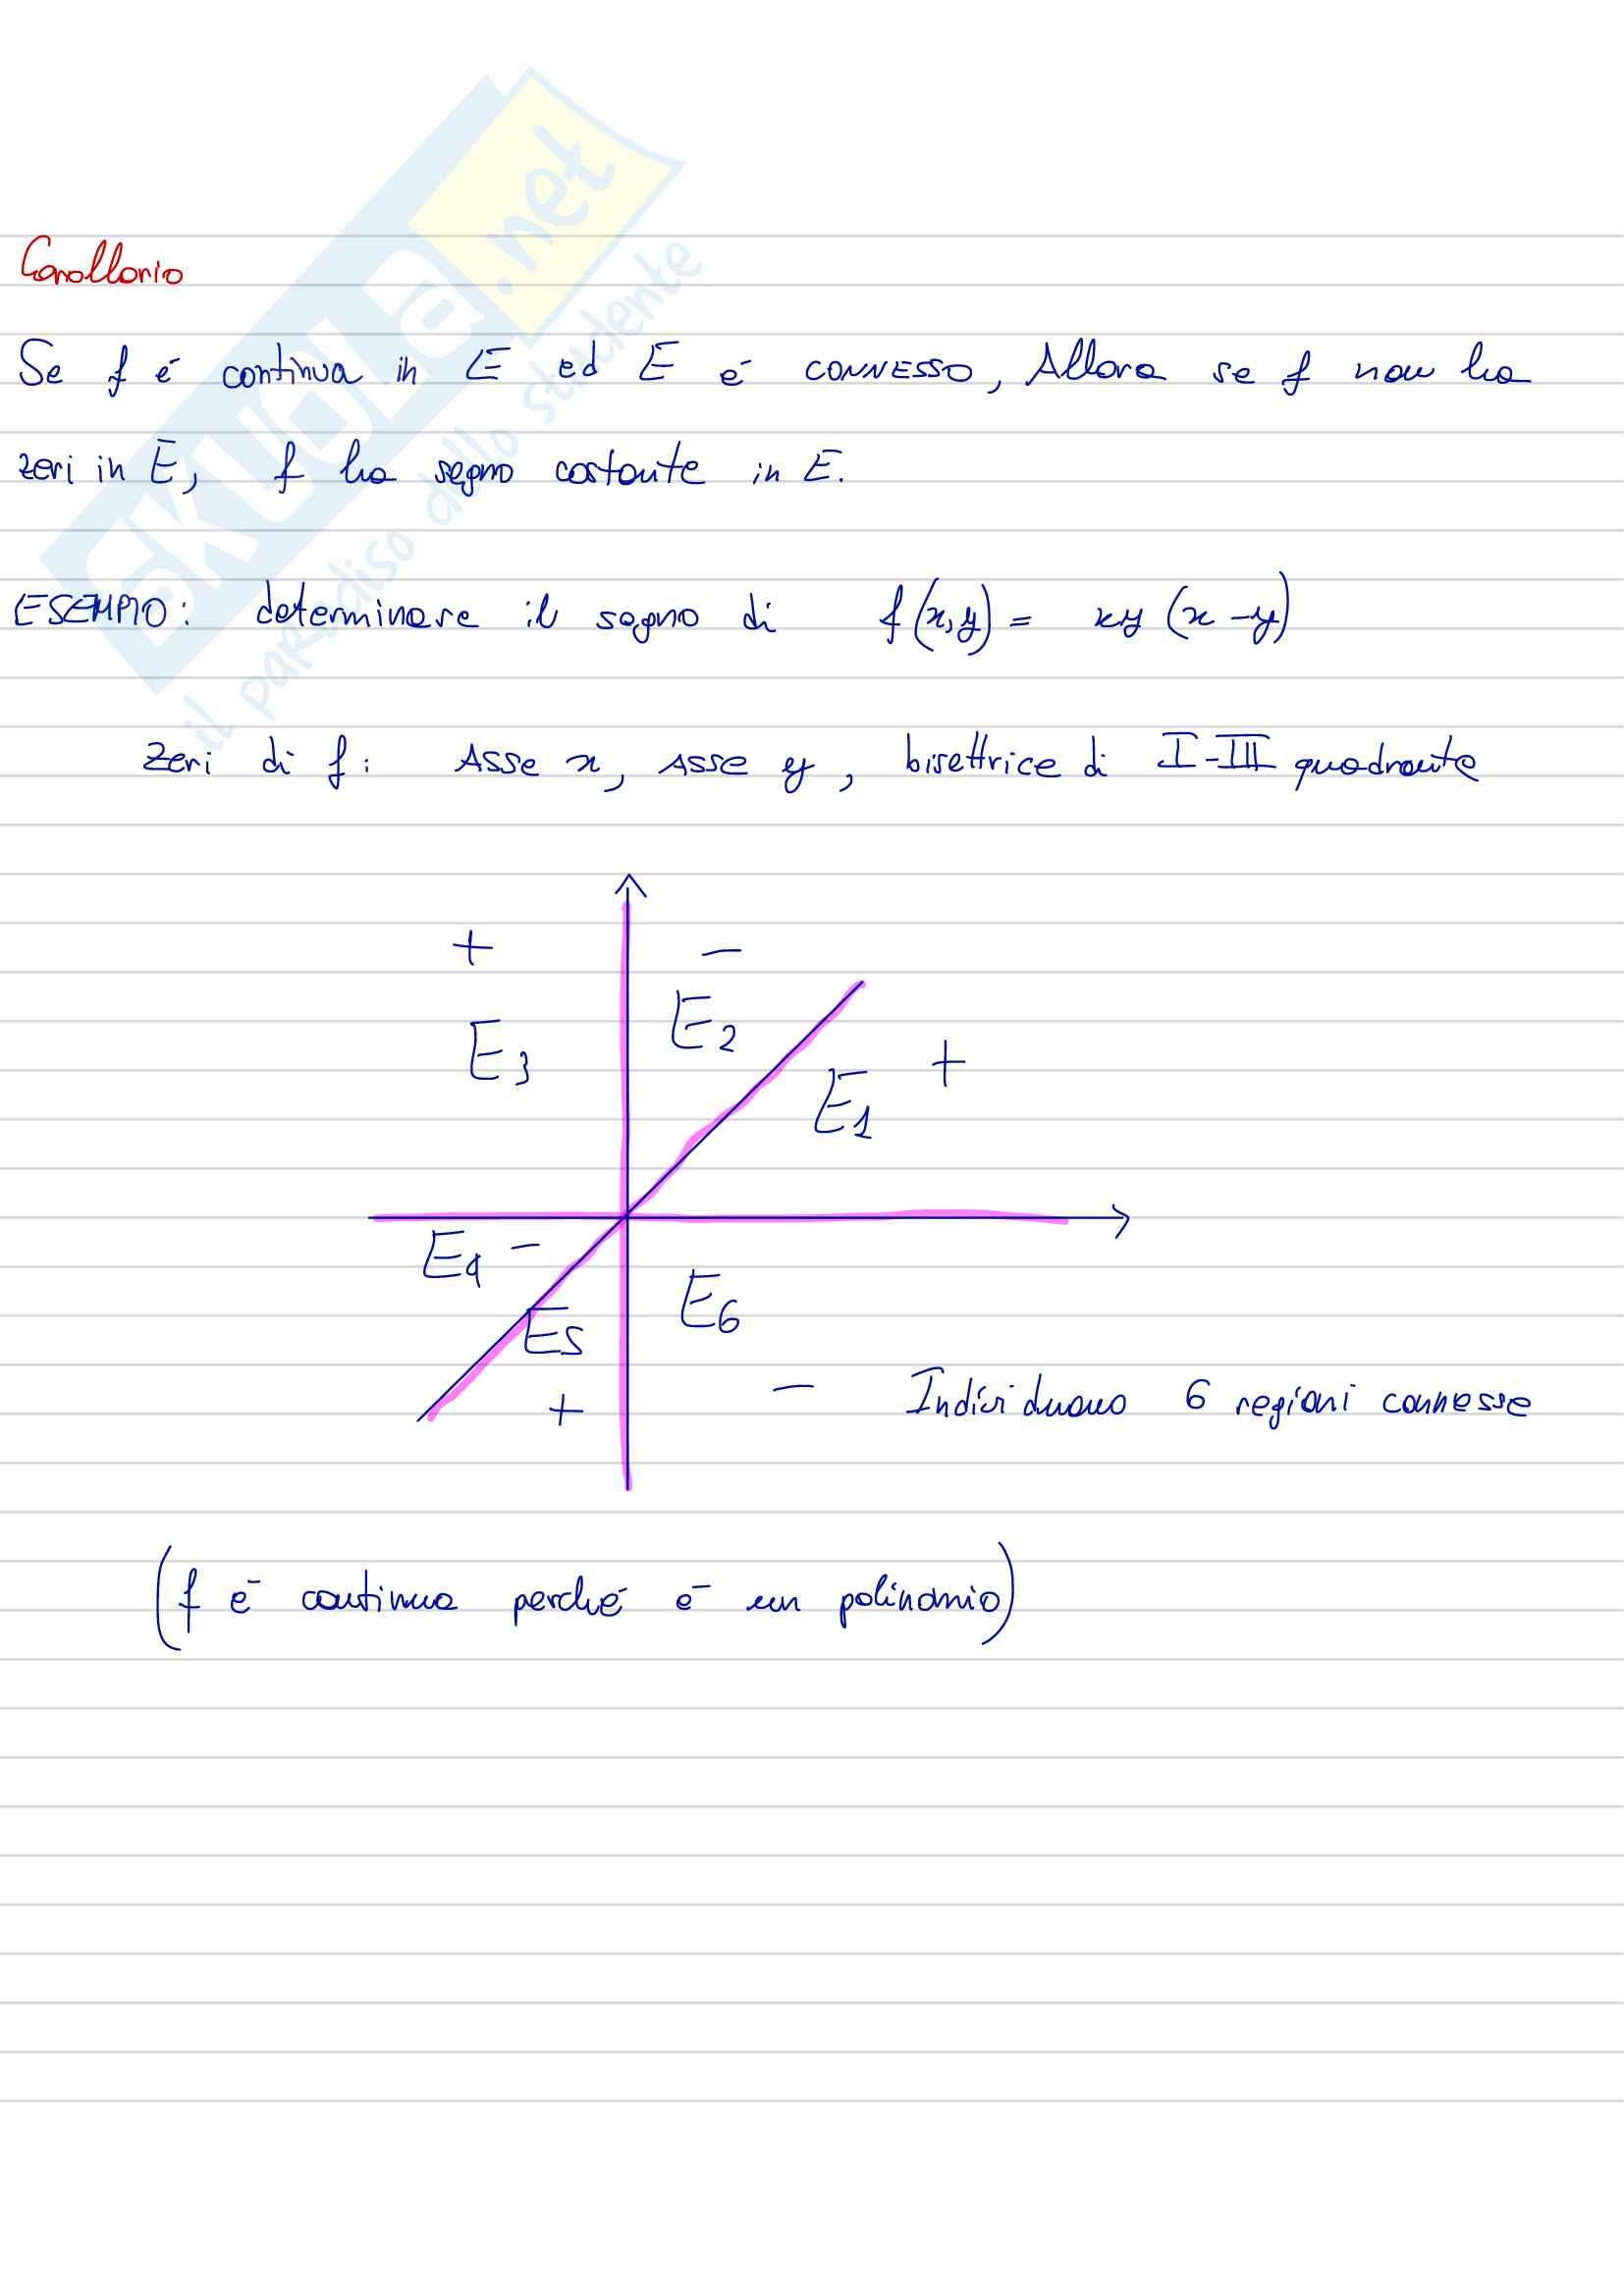 Corollario
Se f é continua in E ed E é CONNESSO, Allora se f non ha
zeri in E, f ha segno costante in E.
ESEMPIO: determinare il segno di f(x,y) = xy (x-y)
zeri di f: Asse x, Asse y, bisettrice di I-III quadrante
+ −
E2
E3 +
E1
E4 −
E6
E5
+ − Individuano 6 regioni connesse
(f é continua perché é un polinomio)
SKUOLA.net
il paradiso dello studente